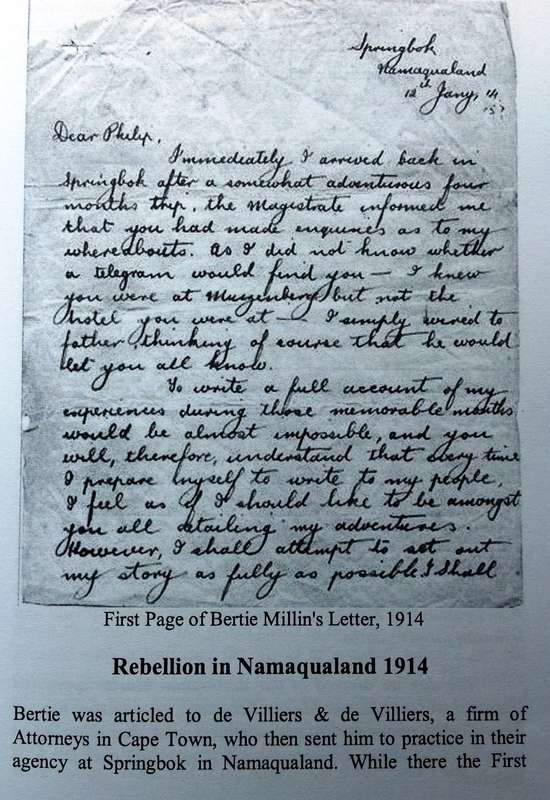 Springbok
Namaqualand
12th Jany, 14
15?
Dear Philip,
Immediately I arrived back in
Springbok after a somewhat adventurous four
months trip, the Magistrate informed me
that you had made enquiries as to my
whereabouts. As I did not know whether
a telegram would find you — I knew
you were at Muizenberg but not the
hotel you were at — I simply wired to
father, thinking of course that he would
let you all know.
To write a full account of my
experiences during those memorable months
would be almost impossible, and you
will, therefore, understand that every time
I prepare myself to write to my people,
I feel as if I should like to be amongst
you all detailing my adventures.
However, I shall attempt to set out
my story as fully as possible. I shall
First Page of Bertie Millin's Letter, 1914
Rebellion in Namaqualand 1914
Bertie was articled to de Villiers & de Villiers, a firm of
Attorneys in Cape Town, who then sent him to practice in their
agency at Springbok in Namaqualand. While there the First